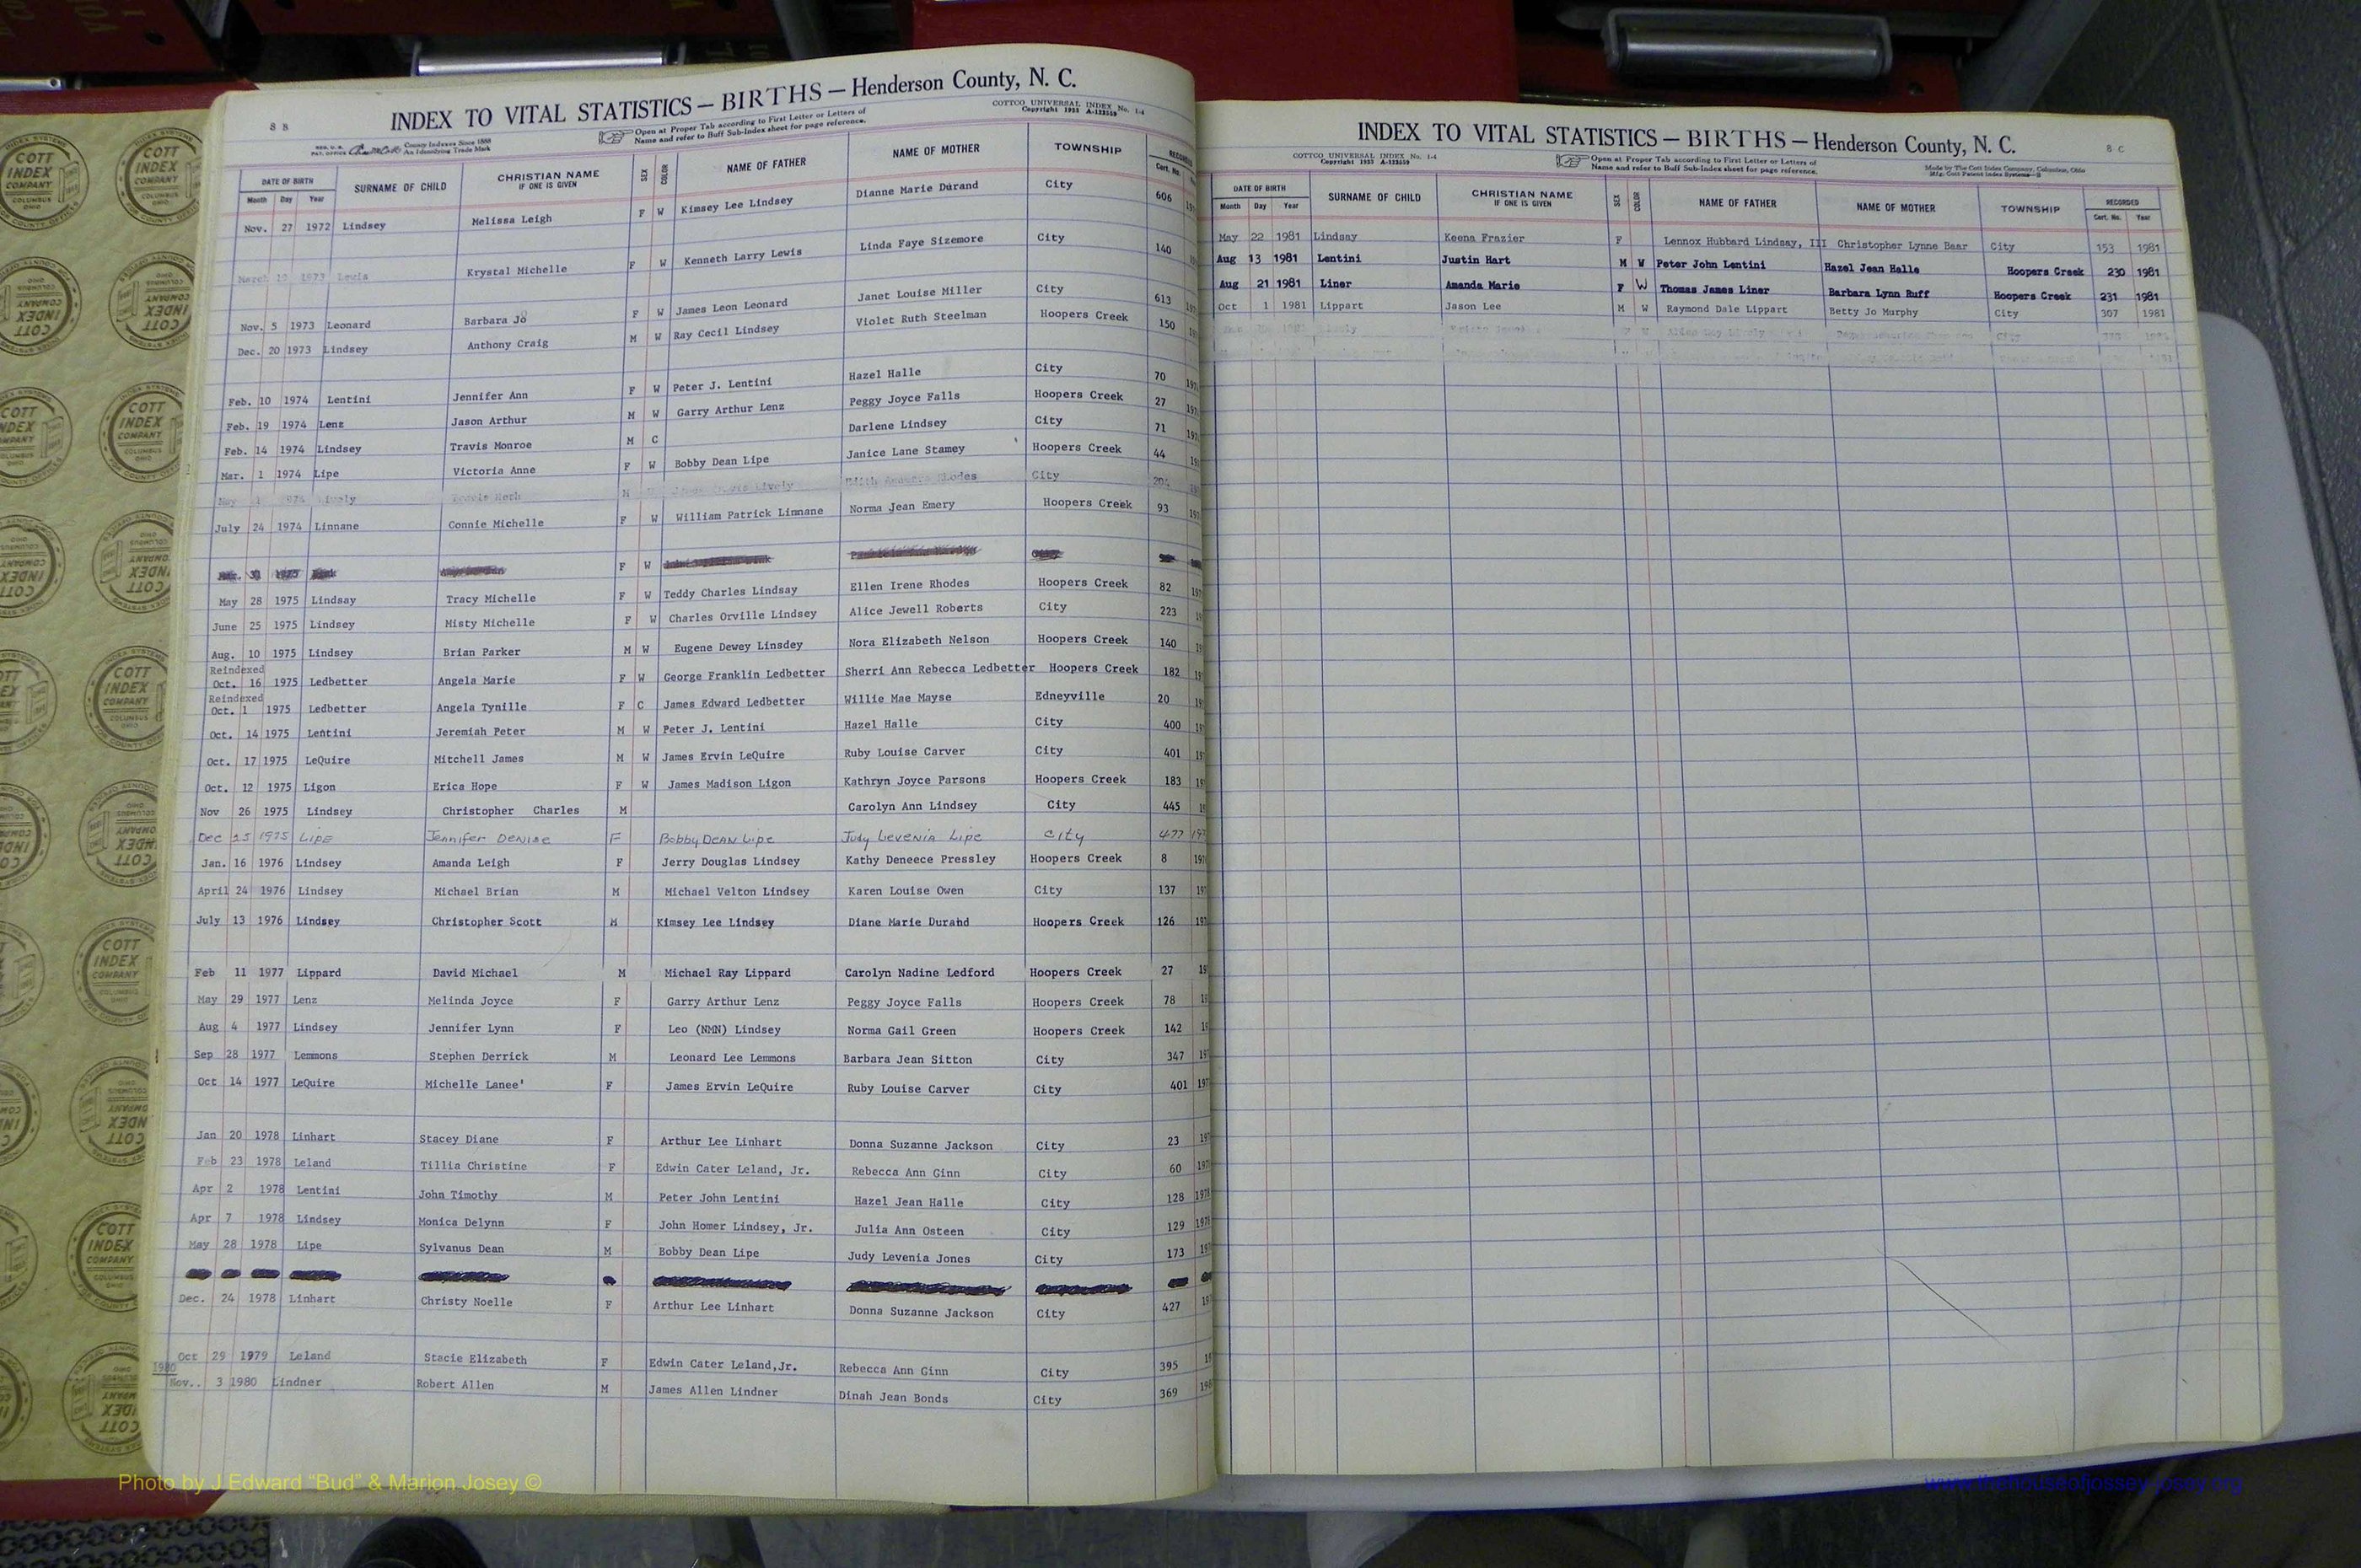 8 B
INDEX TO VITAL STATISTICS — BIRTHS — Henderson County, N. C.
COTTCO UNIVERSAL INDEX No. 1-4
Copyright 1955 A-122559
REG. U. S. PAT. OFFICE County Indexes Since 1888 An Identifying Trade Mark
Open at Proper Tab according to First Letter or Letters of Name and refer to Buff Sub-Index sheet for page reference.
DATE OF BIRTH SURNAME OF CHILD CHRISTIAN NAME IF ONE IS GIVEN SEX COLOR NAME OF FATHER NAME OF MOTHER TOWNSHIP RECORDED
Month Day Year Cert. No.
Nov. 27 1972 Lindsey Melissa Leigh F W Kimsey Lee Lindsey Dianne Marie Durand City 606
March 1973 Lewis Krystal Michelle F W Kenneth Larry Lewis Linda Faye Sizemore City 140
Nov. 5 1973 Leonard Barbara Jo F W James Leon Leonard Janet Louise Miller City 613
Dec. 20 1973 Lindsey Anthony Craig M W Ray Cecil Lindsey Violet Ruth Steelman Hoopers Creek 150
Feb. 10 1974 Lentini Jennifer Ann F W Peter J. Lentini Hazel Halle City 70
Feb. 19 1974 Lenz Jason Arthur M W Garry Arthur Lenz Peggy Joyce Falls Hoopers Creek 27
Feb. 14 1974 Lindsey Travis Monroe M C Darlene Lindsey City 71
Mar. 1 1974 Lipe Victoria Anne F W Bobby Dean Lipe Janice Lane Stamey Hoopers Creek 44
May 1974 Lively M Lively Rhodes City
July 24 1974 Linnane Connie Michelle F W William Patrick Linnane Norma Jean Emery Hoopers Creek 93
F W
May 28 1975 Lindsay Tracy Michelle F W Teddy Charles Lindsay Ellen Irene Rhodes Hoopers Creek 82
June 25 1975 Lindsey Misty Michelle F W Charles Orville Lindsey Alice Jewell Roberts City 223
Aug. 10 1975 Lindsey Brian Parker M W Eugene Dewey Linsdey Nora Elizabeth Nelson Hoopers Creek 140
Reindexed
Oct. 16 1975 Ledbetter Angela Marie F W George Franklin Ledbetter Sherri Ann Rebecca Ledbetter Hoopers Creek 182
Reindexed
Oct. 1 1975 Ledbetter Angela Tynille F C James Edward Ledbetter Willie Mae Mayse Edneyville 20
Oct. 14 1975 Lentini Jeremiah Peter M W Peter J. Lentini Hazel Halle City 400
Oct. 17 1975 LeQuire Mitchell James M W James Ervin LeQuire Ruby Louise Carver City 401
Oct. 12 1975 Ligon Erica Hope F W James Madison Ligon Kathryn Joyce Parsons Hoopers Creek 183
Nov 26 1975 Lindsey Christopher Charles M Carolyn Ann Lindsey City 445
Dec 25 1975 Lipe Jennifer Denise F Bobby Dean Lipe Judy Levenia Lipe City 477
Jan. 16 1976 Lindsey Amanda Leigh F Jerry Douglas Lindsey Kathy Deneece Pressley Hoopers Creek 8
April 24 1976 Lindsey Michael Brian M Michael Velton Lindsey Karen Louise Owen City 137
July 13 1976 Lindsey Christopher Scott M Kimsey Lee Lindsey Diane Marie Durand Hoopers Creek 126
Feb 11 1977 Lippard David Michael M Michael Ray Lippard Carolyn Nadine Ledford Hoopers Creek 27
May 29 1977 Lenz Melinda Joyce F Garry Arthur Lenz Peggy Joyce Falls Hoopers Creek 78
Aug 4 1977 Lindsey Jennifer Lynn F Leo (NMN) Lindsey Norma Gail Green Hoopers Creek 142
Sep 28 1977 Lemmons Stephen Derrick M Leonard Lee Lemmons Barbara Jean Sitton City 347
Oct 14 1977 LeQuire Michelle Lanee' F James Ervin LeQuire Ruby Louise Carver City 401
Jan 20 1978 Linhart Stacey Diane F Arthur Lee Linhart Donna Suzanne Jackson City 23
Feb 23 1978 Leland Tillia Christine F Edwin Cater Leland, Jr. Rebecca Ann Ginn City 60
Apr 2 1978 Lentini John Timothy M Peter John Lentini Hazel Jean Halle City 128 1978
Apr 7 1978 Lindsey Monica Delynn F John Homer Lindsey, Jr. Julia Ann Osteen City 129 1978
May 28 1978 Lipe Sylvanus Dean M Bobby Dean Lipe Judy Levenia Jones City 173
Dec. 24 1978 Linhart Christy Noelle F Arthur Lee Linhart Donna Suzanne Jackson City 427
Oct 29 1979 Leland Stacie Elizabeth F Edwin Cater Leland,Jr. Rebecca Ann Ginn City 395
1980
Nov.. 3 1980 Lindner Robert Allen M James Allen Lindner Dinah Jean Bonds City 369
INDEX TO VITAL STATISTICS — BIRTHS — Henderson County, N. C.
8 C
COTTCO UNIVERSAL INDEX No. 1-4
Copyright 1955 A-122559
Open at Proper Tab according to First Letter or Letters of Name and refer to Buff Sub-Index sheet for page reference.
Made by The Cott Index Company, Columbus, Ohio
Mfg. Cott Patent Index Systems
DATE OF BIRTH SURNAME OF CHILD CHRISTIAN NAME IF ONE IS GIVEN SEX COLOR NAME OF FATHER NAME OF MOTHER TOWNSHIP RECORDED
Month Day Year Cert. No. Year
May 22 1981 Lindsay Keena Frazier F Lennox Hubbard Lindsay, III Christopher Lynne Baar City 153 1981
Aug 13 1981 Lentini Justin Hart M W Peter John Lentini Hazel Jean Halle Hoopers Creek 230 1981
Aug 21 1981 Liner Amanda Marie F W Thomas James Liner Barbara Lynn Ruff Hoopers Creek 231 1981
Oct 1 1981 Lippart Jason Lee M W Raymond Dale Lippart Betty Jo Murphy City 307 1981
City
COTT INDEX COMPANY COLUMBUS OHIO
Photo by J Edward “Bud” & Marion Josey ©
www.thehouseofjossey-josey.org